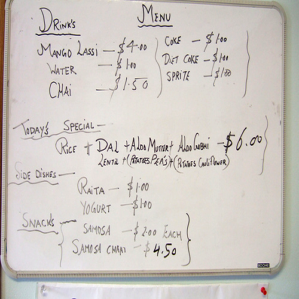 Menu
Drinks
Mango Lassi — $4.00
Water — $1.00
Chai — $1.50
Coke — $1.00
Diet Coke — $1.00
Sprite — $1.00
Today's Special —
Rice + Dal + Aloo Mutter + Aloo Gobhi — $6.00
Lentil + (Potatoes Peas) + (Potatoes Cauliflower)
Side Dishes —
Raita — $1.00
Yogurt — $1.00
Snacks —
Samosa — $2.00 Each
Samosa Chaat — $4.50